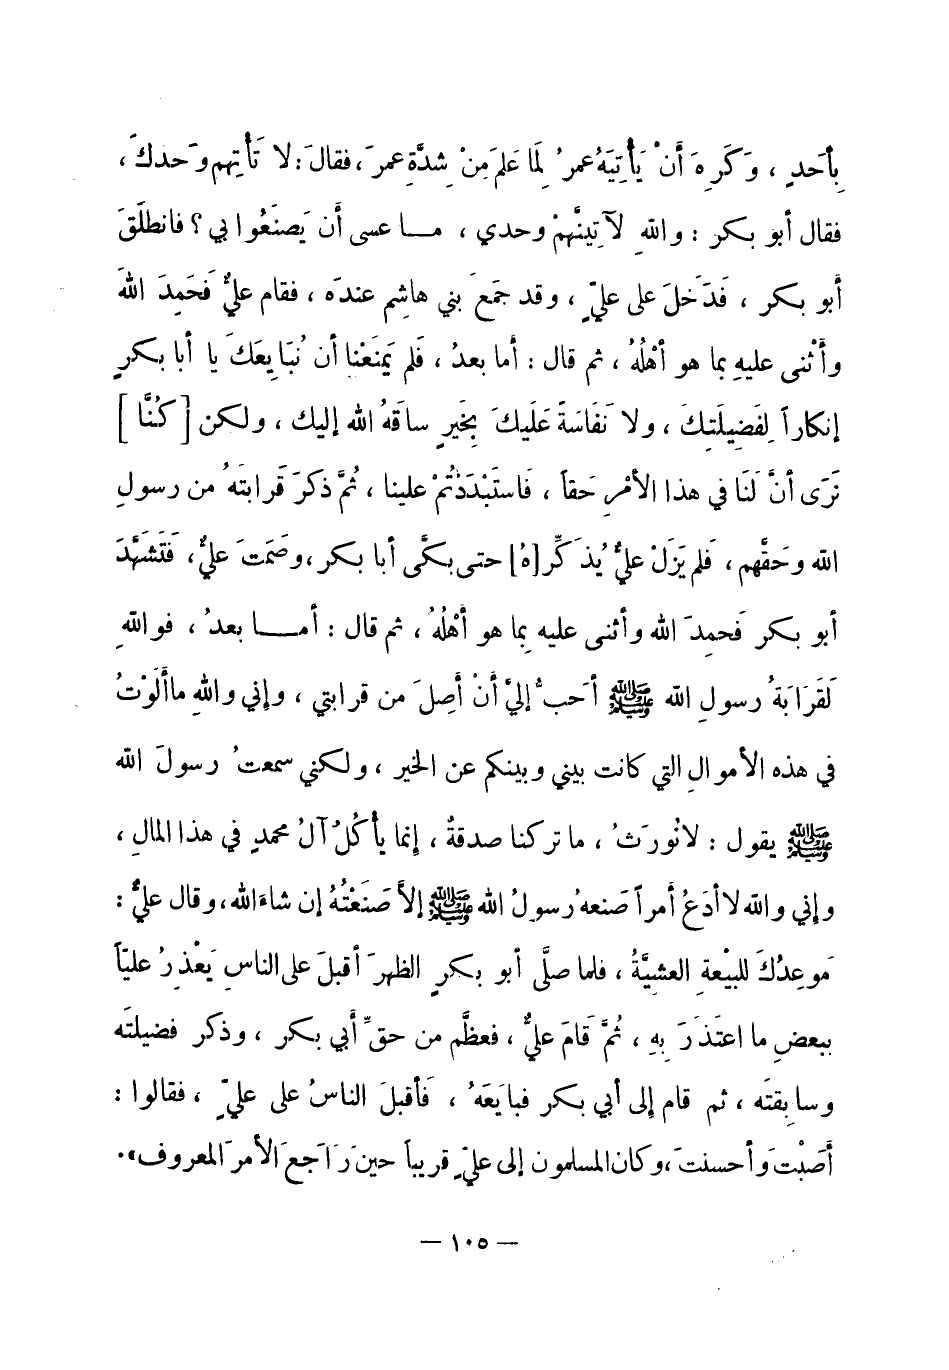 بأَحدٍ ، وَكَرِهَ أَنْ يَأْتِيَهُ عمرُ لِمَا عَلِمَ مِنْ شِدَّةِ عمرَ ، فقالَ : لا تَأْتِهِم وَحدكَ ،
فقال أبو بكر : واللهِ لآتِيَنَّهُمْ وحدي ، مــا عسى أن يَصنَعُوا بي ؟ فانطلَقَ
أبو بكر ، فَدَخَلَ على عليٍّ ، وقد جَمَعَ بني هاشِمٍ عندَه ، فقام عليٌّ فَحَمِدَ اللهَ
وأَثْنى عليهِ بما هو أَهْلُهُ ، ثم قال : أما بعدُ ، فَلم يَمنَعْنا أن نُبَايِعَكَ يا أبا بكرٍ
إنكاراً لِفَضِيلَتِكَ ، ولا نَفَاسَةً عَلَيكَ بِخَيرٍ ساقَهُ الله إليك ، ولكن [ كُنَّا ]
نَرَى أنَّ لَنَا في هذا الأمْرِ حَقاً ، فَاستَبْدَدْتُمْ علينا ، ثُمَّ ذكرَ قَرابتَهُ من رسولِ
الله وحَقَّهم ، فَلم يَزَلْ عليٌّ يُذَكِّر[هُ] حتى بكَّى أبا بكر ، وصَمَتَ عليٌّ ، فَتَشَهَّدَ
أبو بكر فَحمِدَ الله وأثنى عليه بِما هو أَهْلُهُ ، ثم قال : أمــا بعدُ ، فواللهِ
لَقَرَابَةُ رسولِ الله ﷺ أحَبُّ إليَّ أَنْ أَصِلَ من قرابتي ، وإني واللهِ ما أَلَوْتُ
في هذه الأموالِ التي كانت بيني وبينكم عن الخير ، ولكني سمعتُ رسولَ الله
ﷺ يقول : لا نُورَثُ ، ما تركنا صدقةٌ ، إنما يأكُلُ آلُ محمدٍ في هذا المالِ ،
وإني والله لا أدَعُ أمراً صَنعهُ رسولُ الله ﷺ إلاَّ صَنَعْتُهُ إن شاءَ الله ، وقال عليٌّ :
مَوعِدُكَ للبيْعةِ العشِيَّةُ ، فلما صلَّى أبو بكرٍ الظهرَ أقبلَ على الناسِ يَعْذِرُ عليّاً
ببعضِ ما اعتَذَرَ بِهِ ، ثُمَّ قَامَ عليٌّ ، فعظَّم من حقِّ أبي بكر ، وذكر فضيلتَه
وسابِقتَه ، ثم قام إلى أبي بكر فبايَعَهُ ، فَأقبلَ الناسُ على عليٍّ ، فقالوا :
أَصَبْتَ وأحسنتَ ، وكان المسلمون إلى عليٍّ قريباً حينَ رَاجعَ الأمرَ المعروف» .
— ١٠٥ —